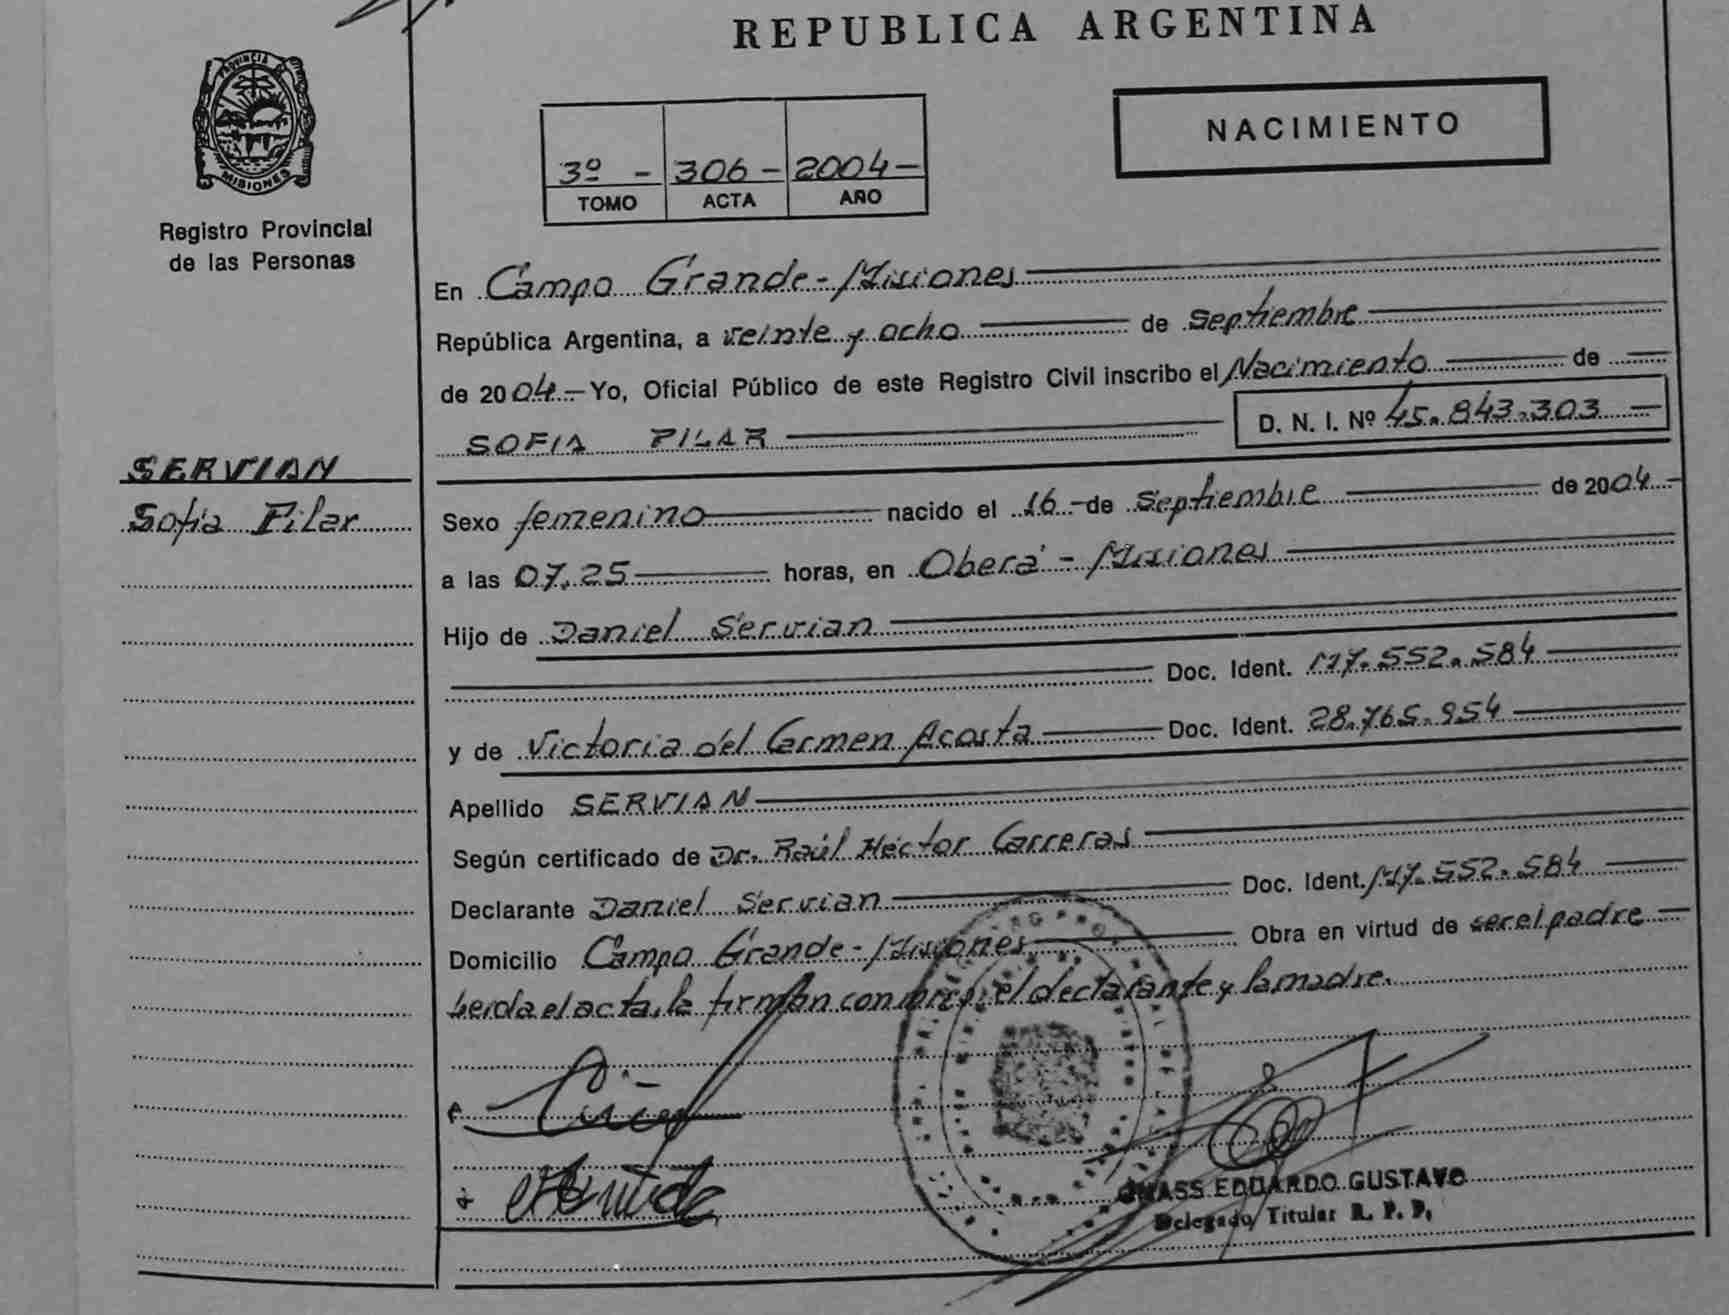 REPUBLICA ARGENTINA
PROVINCIA DE
MISIONES
Registro Provincial
de las Personas
NACIMIENTO
3º - 306 - 2004 -
TOMO ACTA AÑO
En Campo Grande - Misiones
República Argentina, a veinte y ocho de Septiembre
de 2004 - Yo, Oficial Público de este Registro Civil inscribo el Nacimiento de
SOFIA PILAR D. N. I. Nº 45.843.303 -
SERVIAN
Sofia Pilar
Sexo femenino nacido el 16 - de Septiembre de 2004 -
a las 07.25 horas, en Oberá - Misiones
Hijo de Daniel Servian
Doc. Ident. M7.552.584
y de Victoria del Carmen Acosta Doc. Ident. 28.765.954
Apellido SERVIAN
Según certificado de Dr. Raúl Héctor Carreras
Declarante Daniel Servian Doc. Ident. M7.552.584
Domicilio Campo Grande - Misiones Obra en virtud de ser el padre -
Leida el acta, la firman conmigo, el declarante y la madre.
EDUARDO GUSTAVO
Delegado Titular R. P. P.